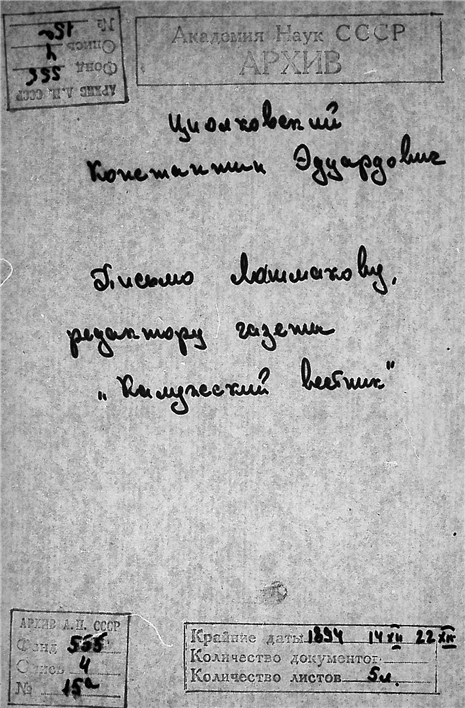 АРХИВ А.Н. СССР
Фонд 555
Опись 4
№ 15а
Академия Наук СССР
АРХИВ
Циолковский
Константин Эдуардович
Письмо Лашманову,
редактору газеты
„Калужский вестник"
АРХИВ А.Н. СССР
Фонд 555
Опись 4
№ 15а
Крайние даты 1894 14 XII 22 XII
Количество документов
Количество листов 5л.